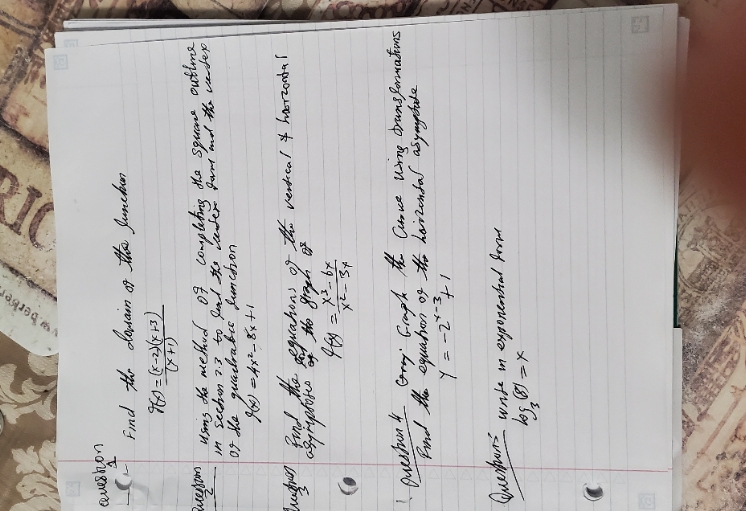 question
1
Find the domain of the function
f(x) = (x-2)(x+3)
(x+1)
Question
2
using the method of completing the square outline
in section 2.3 to find the vertex form and the vertex
of the quadratic function
f(x) = 4x² - 8x + 1
Question
3
Find the equations of the vertical & horizontal
asymptotes of the graph of
f(x) = x³ - 6x
x² - 3x
Question 4
Graph the curve using transformations
Find the equation of the horizontal asymptote
y = -2^{x-3} + 1
Question 5
write in exponential form
log₃(8) = x